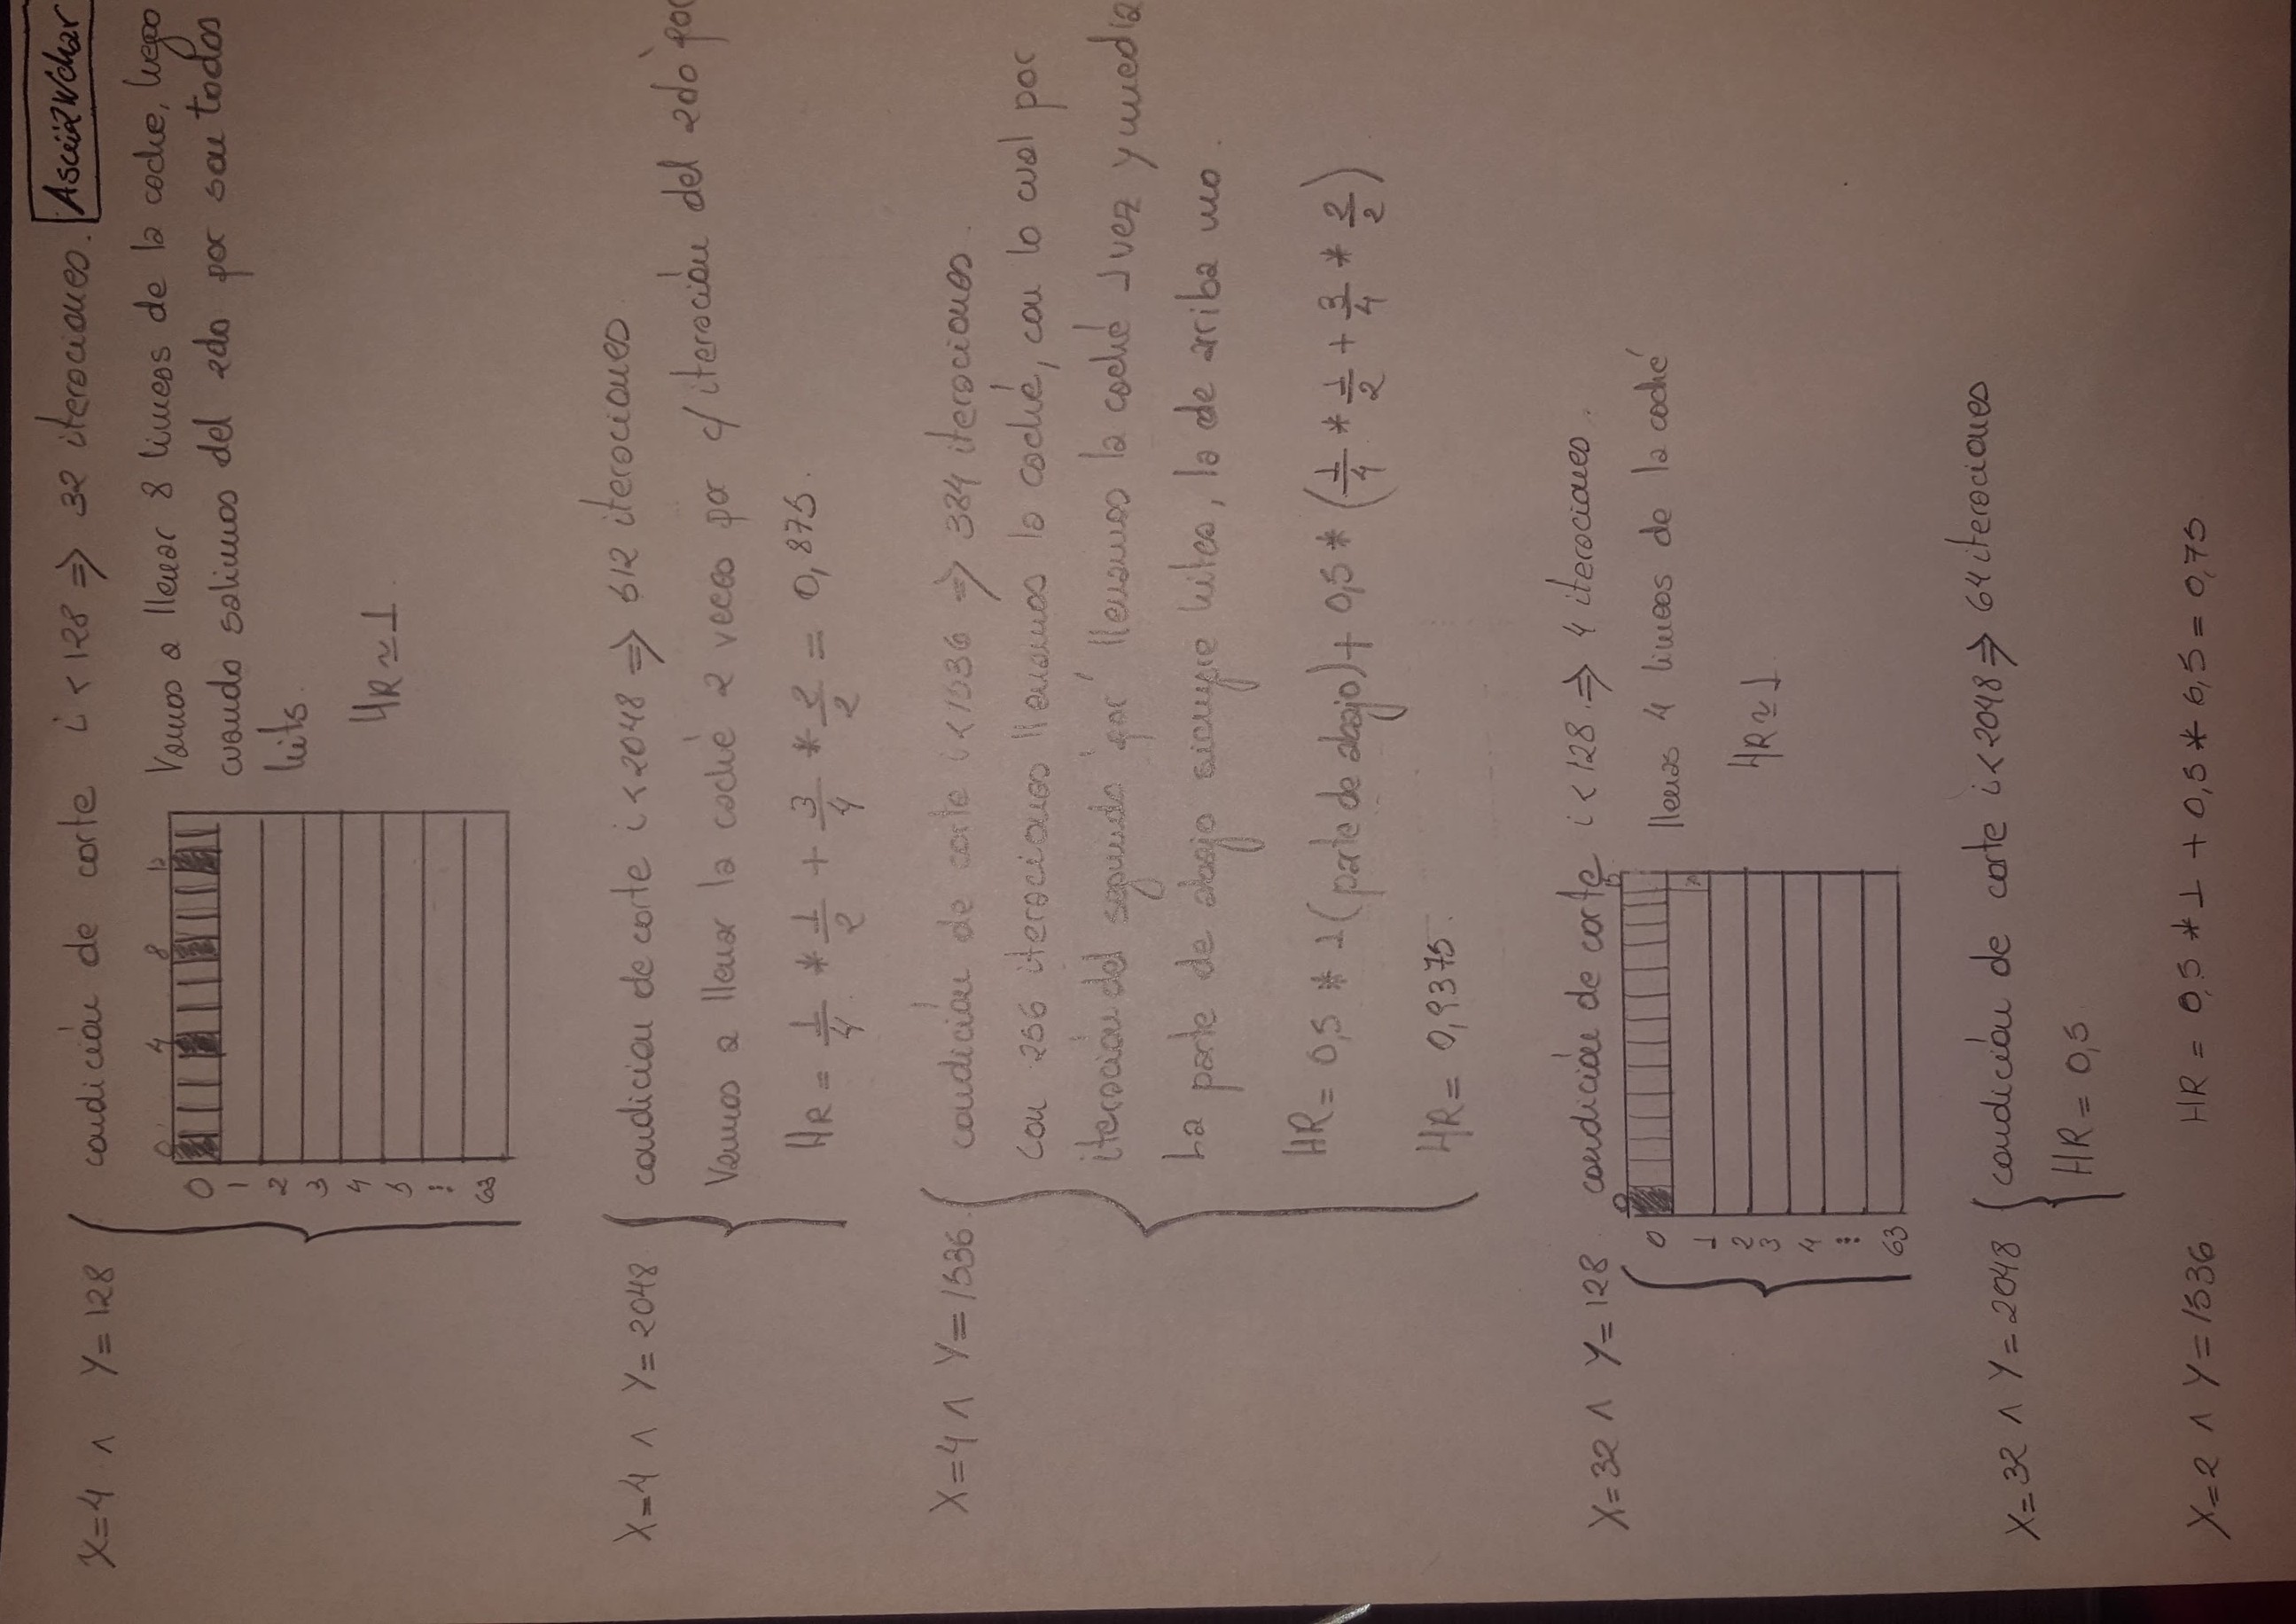 X=4 ∧ Y=128 condición de corte i<128 ⇒ 32 iteraciones. Ascii2Wchar
0 4 8 12
Vamos a llenar 8 lineas de la cache, luego
0
cuando salimos del 2do for son todos
1
2
hits.
3
4
HR ≃ 1.
5
⋮
63
X=4 ∧ Y=2048 condicion de corte i<2048 ⇒ 512 iteraciones
Vamos a llenar la caché 2 veces por c/ iteración del 2do 'for
HR = 1/4 * 1/2 + 3/4 * 2/2 = 0,875.
X=4 ∧ Y=1536. condición de corte i<1536 ⇒ 384 iteraciones.
Con 256 iteraciones llenamos la caché, con lo cual por
iteración del segundo 'for' llenamos la caché 1 vez y media
La parte de abajo siempre hitea, la de arriba no.
HR = 0,5 * 1 (parte de abajo) + 0,5 * (1/4 * 1/2 + 3/4 * 2/2)
HR = 0,9375.
X=32 ∧ Y=128 condición de corte i<128 ⇒ 4 iteraciones.
0 15
0
llenas 4 lineas de la caché
1
2
HR ≃ 1.
3
4
⋮
63
X=32 ∧ Y=2048 condición de corte i<2048 ⇒ 64 iteraciones
HR = 0,5
X=2 ∧ Y=1536 HR = 0,5 * 1 + 0,5 * 0,5 = 0,75